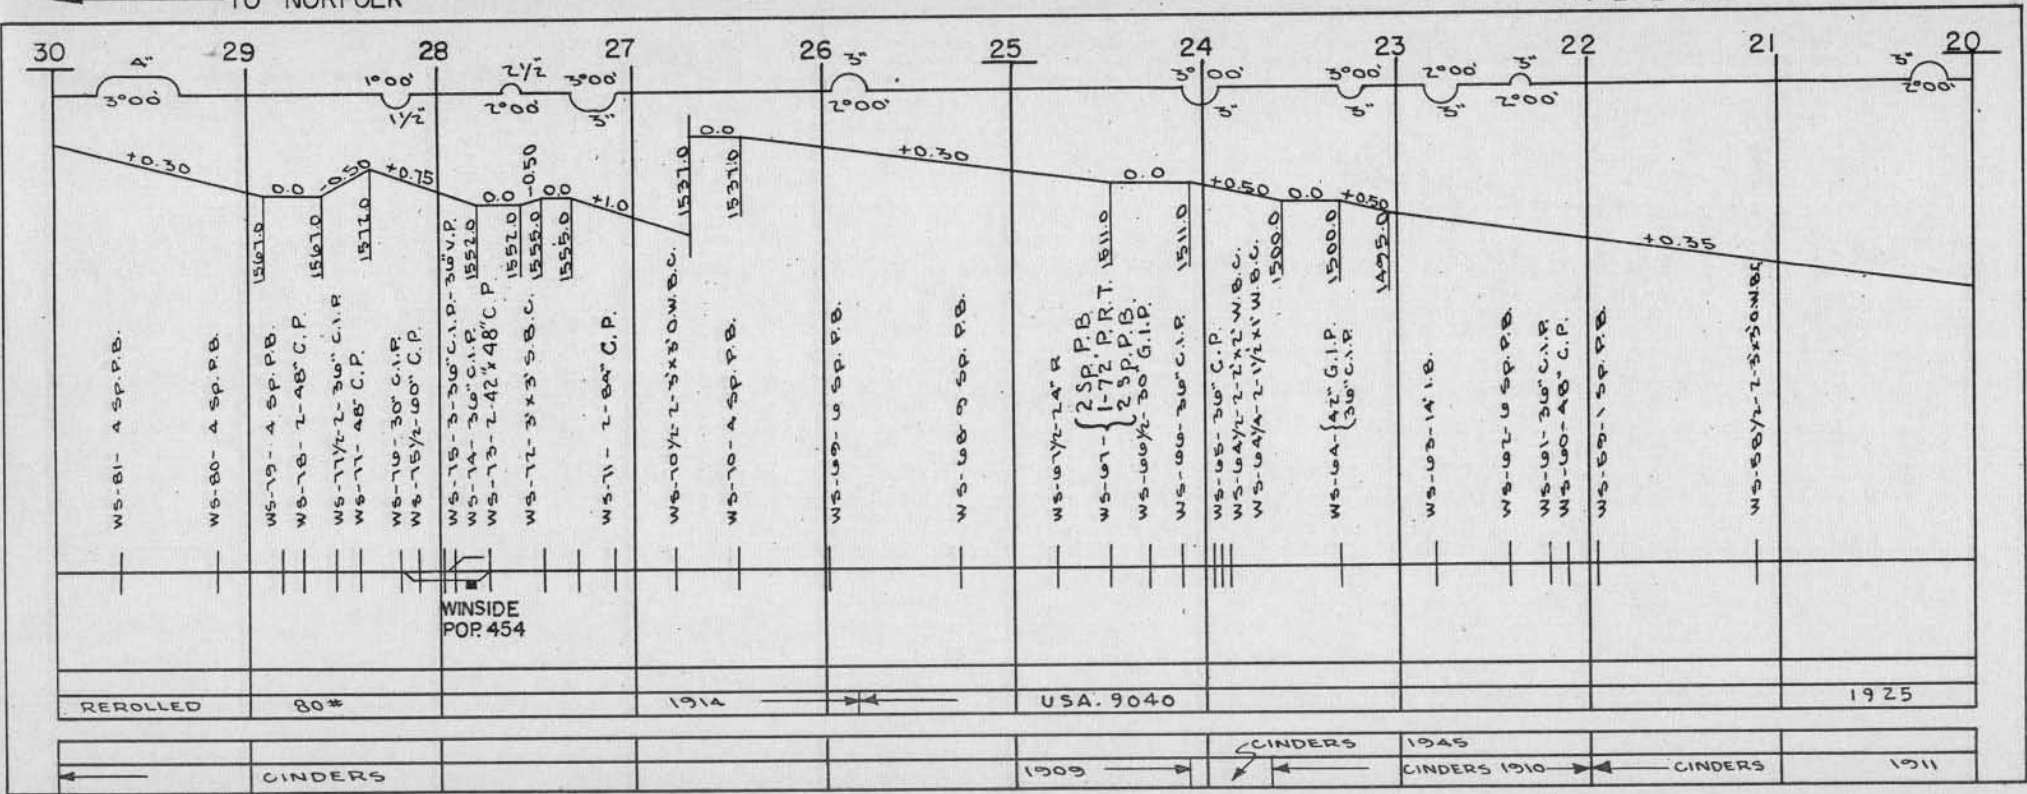 TO NORFOLK
30 29 28 27 26 25 24 23 22 21 20
4" 1°00' 2½" 3°00' 3" 3°00' 3°00' 2°00' 3" 3"
3°00' 1½" 2°00' 3" 2°00' 3" 3" 3" 2°00' 2°00'
+0.30 0.0 -0.50 +0.75 0.0 -0.50 0.0 +1.0 0.0 +0.30 0.0 +0.50 0.0 +0.50 +0.35
1567.0 1567.0 1572.0 1552.0 1552.0 1555.0 1555.0 1537.0 1537.0 1511.0 1511.0 1500.0 1500.0 1495.0
WS-81- 4 SP. P.B.
WS-80- 4 SP. P.B.
WS-79- 4 SP. P.B.
WS-78- 2-48" C.P.
WS-77 1/2-2-36" C.I.P.
WS-77-48" C.P.
WS-76-30" C.I.P.
WS-75 1/2-60" C.P.
WS-75-3-36" C.I.P.-36" V.P.
WS-74-36" C.I.P.
WS-73-2-42" X 48" C P
WS-72-3' X 3' S.B.C.
WS-71- 2-84" C.P.
WS-70 1/2-2-3'X3' O.W.B.C.
WS-70-4 SP. P.B.
WS-69-6 SP. P.B.
WS-68-9 SP. P.B.
WS-67 1/2-24" P.
WS-67- { 2 SP. P.B.
1-72' P.R.T.
2 SP. P.B.
WS-66 1/2-30" G.I.P.
WS-66-36" C.I.P.
WS-65-36" C.P.
WS-64 1/2-2-2'X2' W.B.C.
WS-64 1/4-2-1 1/2'X1' W.B.C.
WS-64- { 42" G.I.P.
36" C.I.P.
WS-63-14' I.B.
WS-62-6 SP. P.B.
WS-61-36" C.I.P.
WS-60-48" C.P.
WS-59-1 SP. P.B.
WINSIDE
POP. 454
REROLLED 80# 1914 USA. 9040 1925
CINDERS 1945
CINDERS 1909 CINDERS 1910 CINDERS 1911